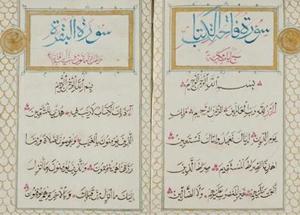 سورة فاتحة الكتاب
بسم الله الرحمن الرحيم
الحمد لله رب العالمين الرحمن الرحيم مالك
يوم الدين اياك نعبد واياك نستعين
اهدنا الصراط المستقيم صراط الذين
انعمت عليهم غير المغضوب عليهم ولا الضالين
سورة البقرة
بسم الله الرحمن الرحيم
الم ذلك الكتاب لا ريب فيه هدى للمتقين
الذين يؤمنون بالغيب ويقيمون الصلوة ومما
رزقناهم ينفقون والذين يؤمنون بما انزل
اليك وما انزل من قبلك وبالآخرة هم يوقنون